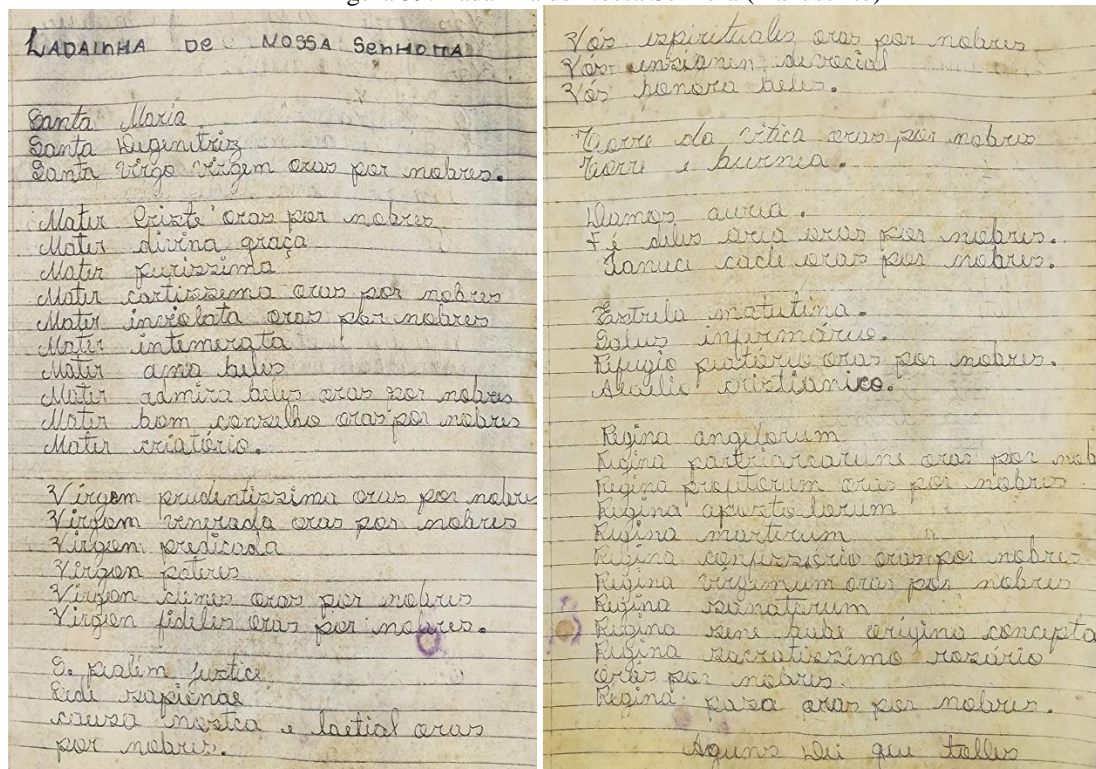 LADAINHA DE NOSSA SENHORA
Santa Maria
Santa Degenitriz
Santa Virgo virgem oras por nobres.
Mater Criste oras por nobres
Mater divina graça
Mater purissima
Mater cartissema oras por nobres
Mater inviolata oras por nobres
Mater intemerata
Mater ama beles
Mater admira beles oras por nobres
Mater bom conselho oras por nobres
Mater criatório.
Virgem prudentissima oras por nobre
Virgem venerada oras por nobres
Virgem predicada
Virgen poteres
Virgen clemes oras por nobres
Virgen fideles oras por nobres.
S. pialim justice
Sede sapienae
causa nostca e laetial oras
por nobres.
Vós espirituales oras por nobres
Vós insianen devocial
Vós honora beles.
Tiorre da vitica oras por nobres
Tiorre e burnea.
Damos auria.
Fé deles aria oras por nobres.
Januci cacli oras por nobres.
Estrela matutina.
Salus infirmórus.
Refugio piatório oras por nobres.
Auxilio cristianico.
Regina angelorum
Regina partriarcarune oras por nob
Regina projitorum oras por nobres.
Regina apusto lorum
Regina marterum
Regina confissório oras por nobres
Regina virginum oras por nobres
Regina sanatorum
Regina sene bube origina concepta
Regina sacratissimo rozário
oras por nobres.
Regina paza oras por nobres.
Aguns Dei que tolles